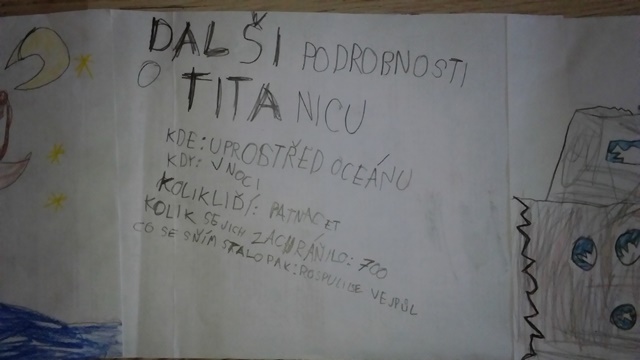 DALŠÍ PODROBNOSTI
O TITANICU
KDE: UPROSTŘED OCEÁNU
KDY: V NOCI
KOLIK LIDÍ: PATNACET
KOLIK SE JICH ZACHRÁNILO: 700
CO SE S NÍM STALO PAK: ROSPULIL SE VEJPŮL